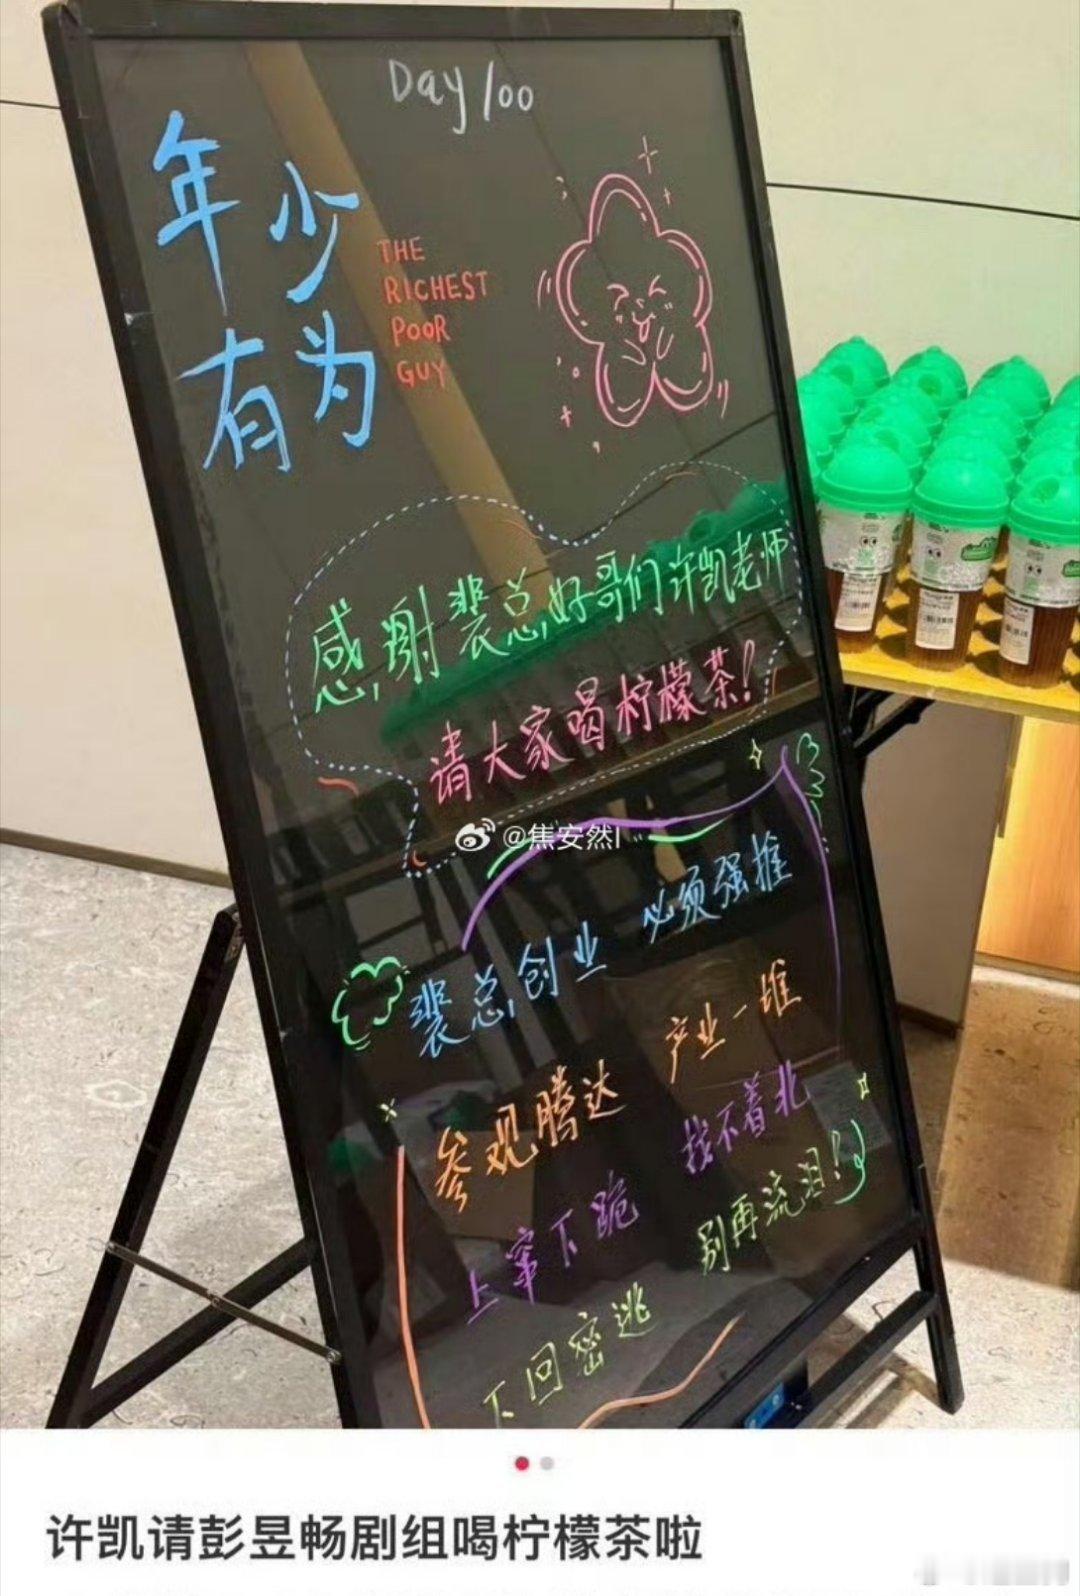 Day 100
年少
有为
THE
RICHEST
POOR
GUY
感谢裴总好哥们许凯老师
请大家喝柠檬茶!
@焦安然l
裴总创业 必须强推
参观腾达 产业一堆
上窜下跪 找不着北
下回密逃 别再流泪!
许凯请彭昱畅剧组喝柠檬茶啦